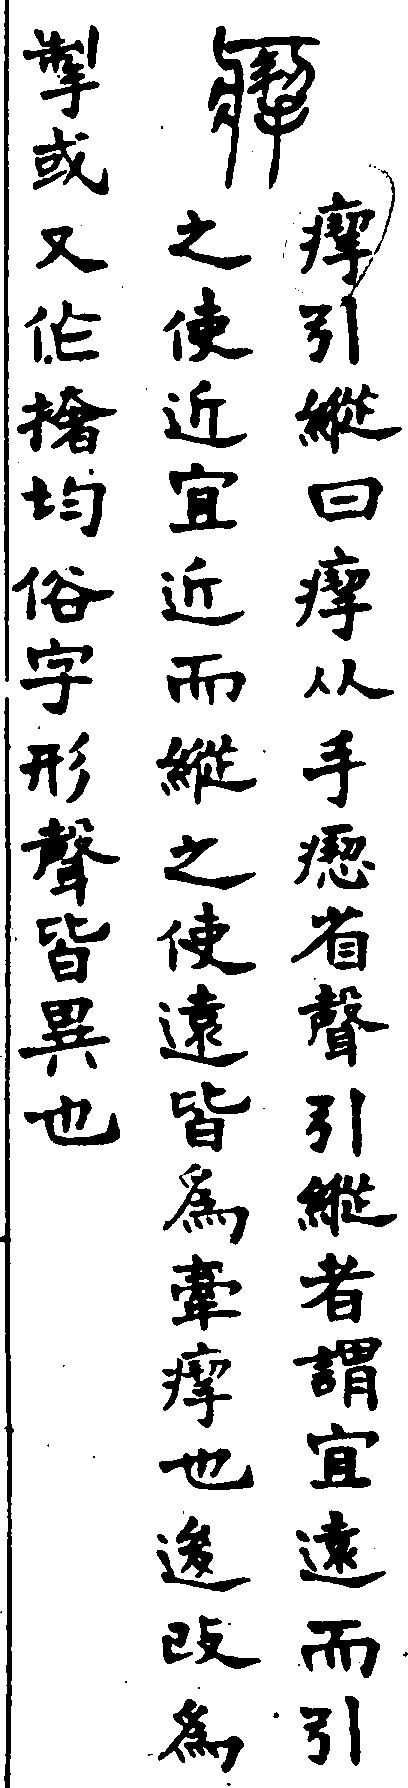 引縱曰从手瘛省聲引縱者謂宜遠而引
之使近宜近而縱之使遠皆爲牽也後改爲
掣或又作撦均俗字形聲皆異也